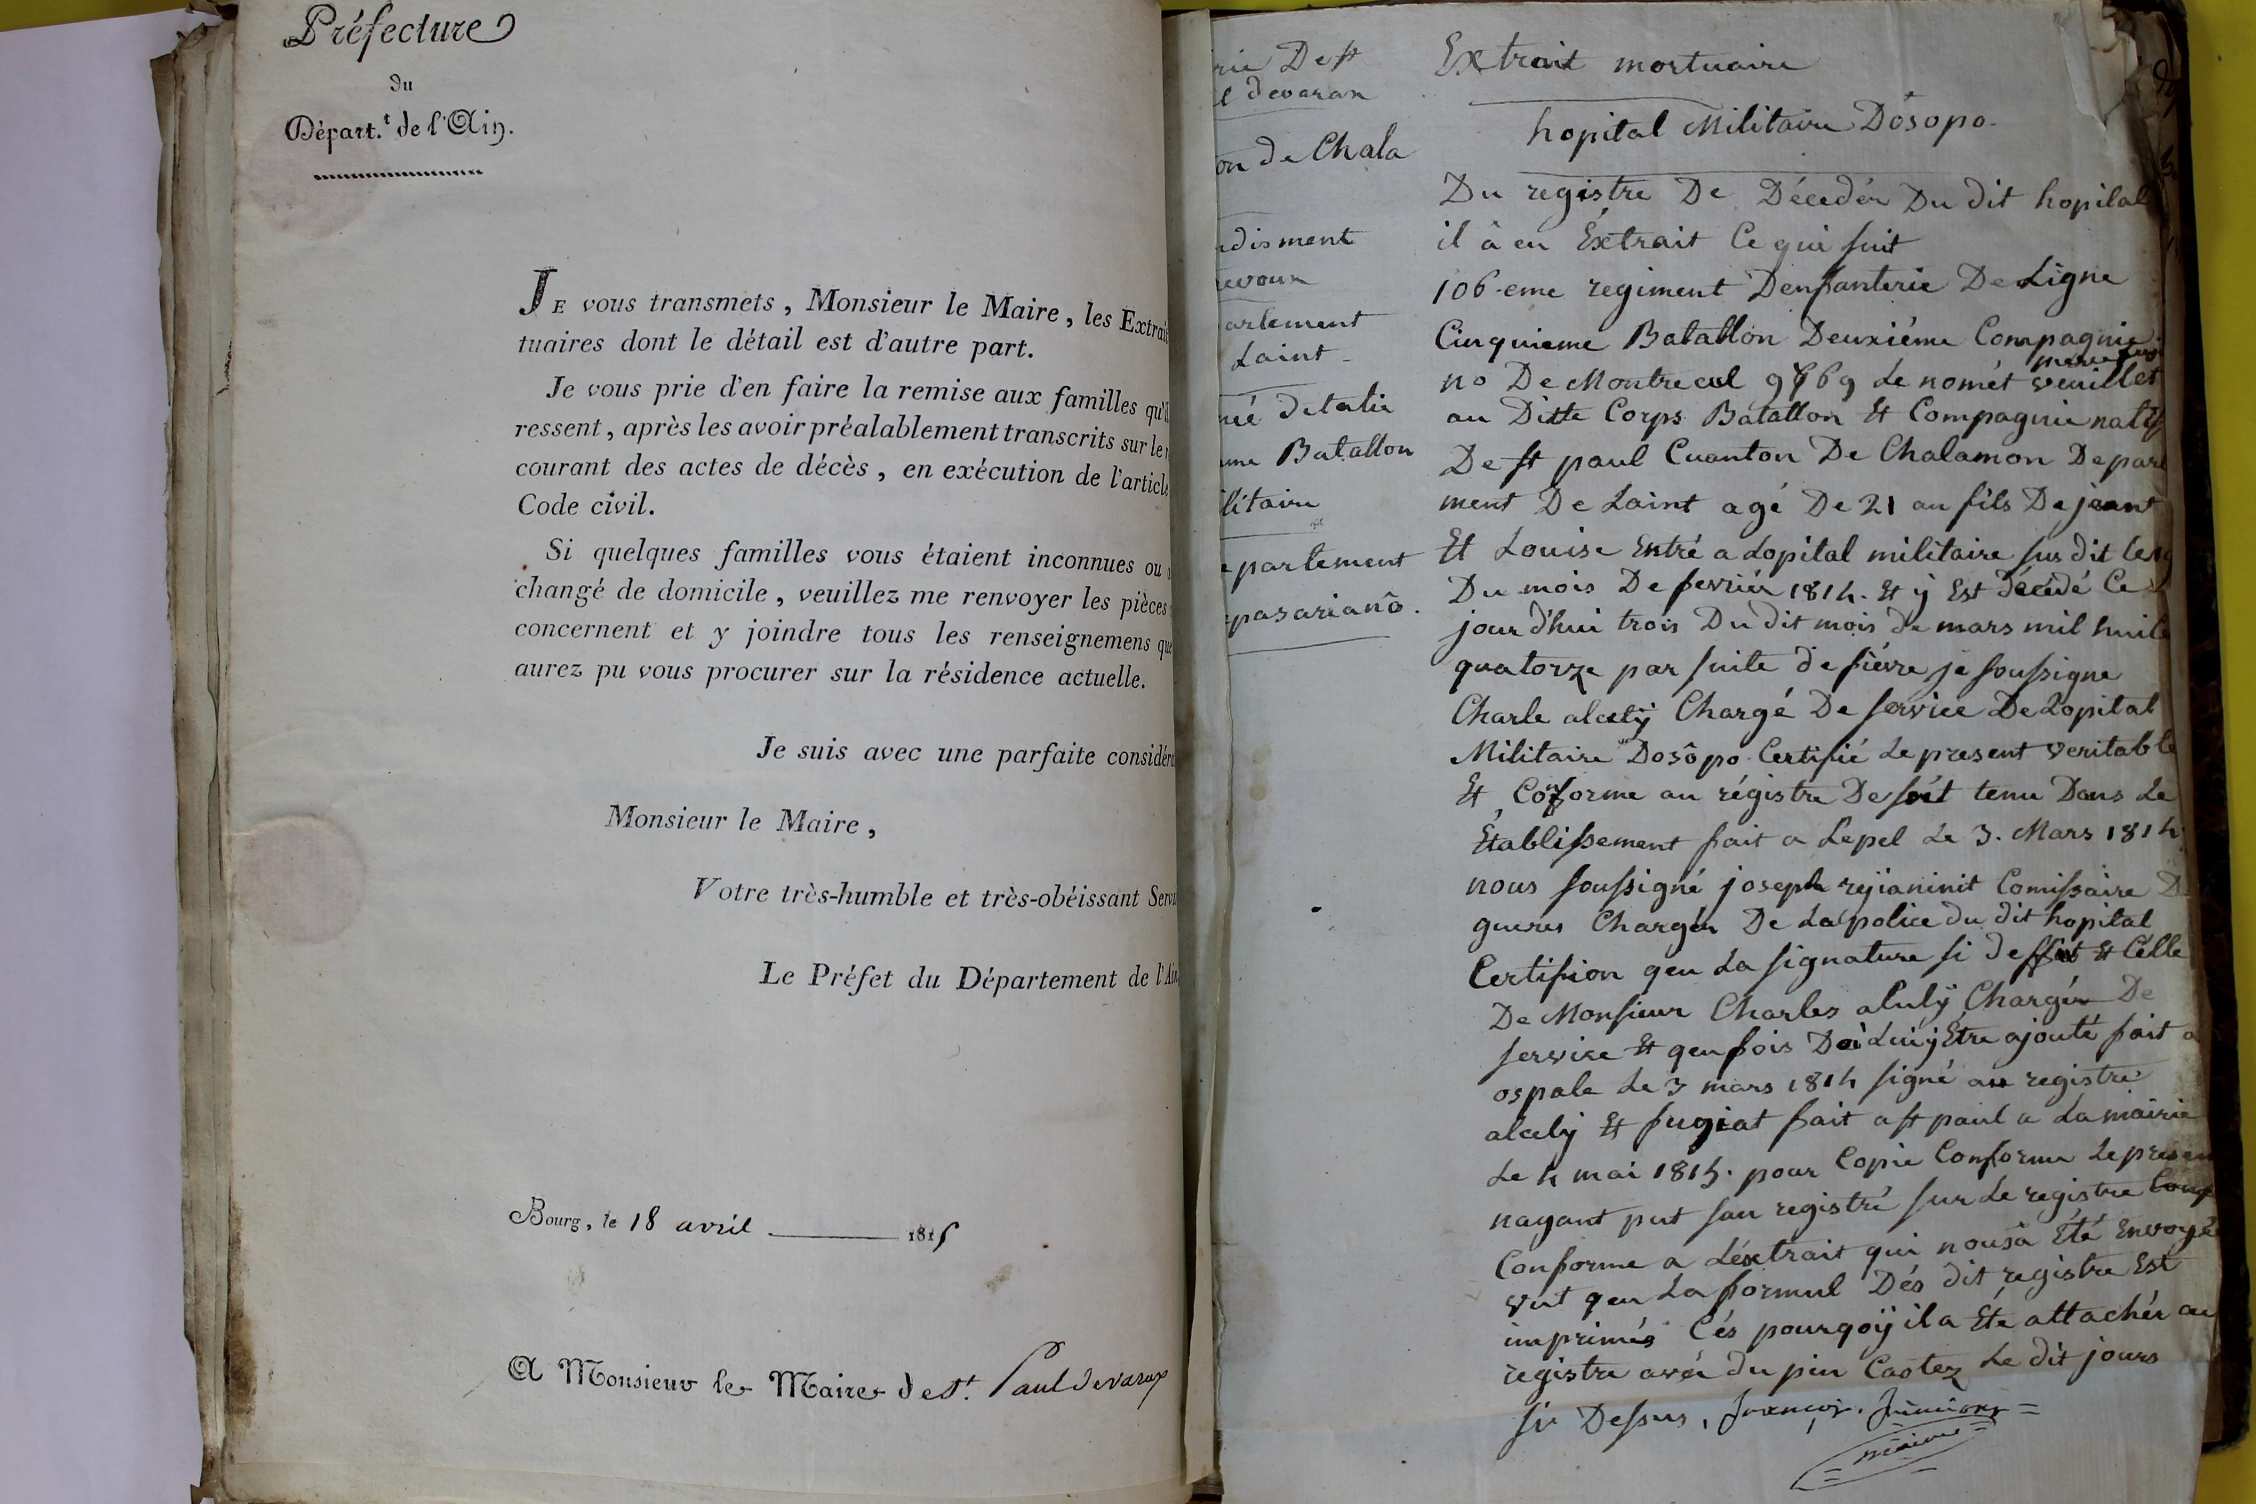 Préfecture
du
Départ.t de l'Ain.
JE vous transmets, Monsieur le Maire, les Extrai
tuaires dont le détail est d'autre part.
Je vous prie d'en faire la remise aux familles qu'
ressent, après les avoir préalablement transcrits sur le
courant des actes de décès, en exécution de l'article
Code civil.
Si quelques familles vous étaient inconnues ou
changé de domicile, veuillez me renvoyer les pièces
concernent et y joindre tous les renseignemens que
aurez pu vous procurer sur la résidence actuelle.
Je suis avec une parfaite considéra
Monsieur le Maire,
Votre très-humble et très-obéissant Serv
Le Préfet du Département de l'Ain
Bourg, le 18 avril 1815
A Monsieur le Maire de St. Paul devarax
rie De st
l devaran
on de Chala
dis ment
revoux
artement
Laint
né detalie
me Batallon
litaire
partement
pasarianô.
Extrait mortuaire
hopital Militaire Dosopo
Du registre De Décedér Du dit hopital
il à eu Extrait Ce qui suit
106-eme regiment Denfanterie De Ligne
Cinquieme Batallon Deuxiéme Compagnie
no De Montrecul 9869 Le nomét veuillet
au Ditte Corps Batallon Et Compagnie natif
De st paul Cuanton De Chalamon Depart
ment De Laint agé De 21 an fils De jeant
Et Louise Entré a Lopital militaire sus dit le
Du mois De fevriér 1814. Et ÿ Est décédé Ce
jourd'hui trois Du dit mois de mars mil huite
quatorze par suite de fiévre je soussigne
Charle alcetÿ Chargé De service De Lopital
Militaire Dosôpo Certifié Le present veritable
Et Conforme au régistre De tenu Dans Le
Établissement fait a Lepel Le 3. Mars 1814.
nous soussigné joseph rejianinit Comissaire D
gueres Chargér De La police du dit hopital
Certifion qeu La signature si Et Célle
De Monsieur Charles Chargér De
servise Et qeu fois Doi Luij Etre ajouté fait a
ospale Le 3 mars 1814 signé au registre
alcelij Et fugiat fait a st paul a La mairie
Le 4 mai 1815. pour Copie Conforme Le presen
nayant put sau registré sur Le registre
Conforme a Léxtrait qui nousâ Été Envoyé
vut qeu La formul Dés dit registre Est
imprimés Cés pourqoÿ il a Eté attachér au
registre avéc du pin Castez Le dit jours
si Dessus,
maire